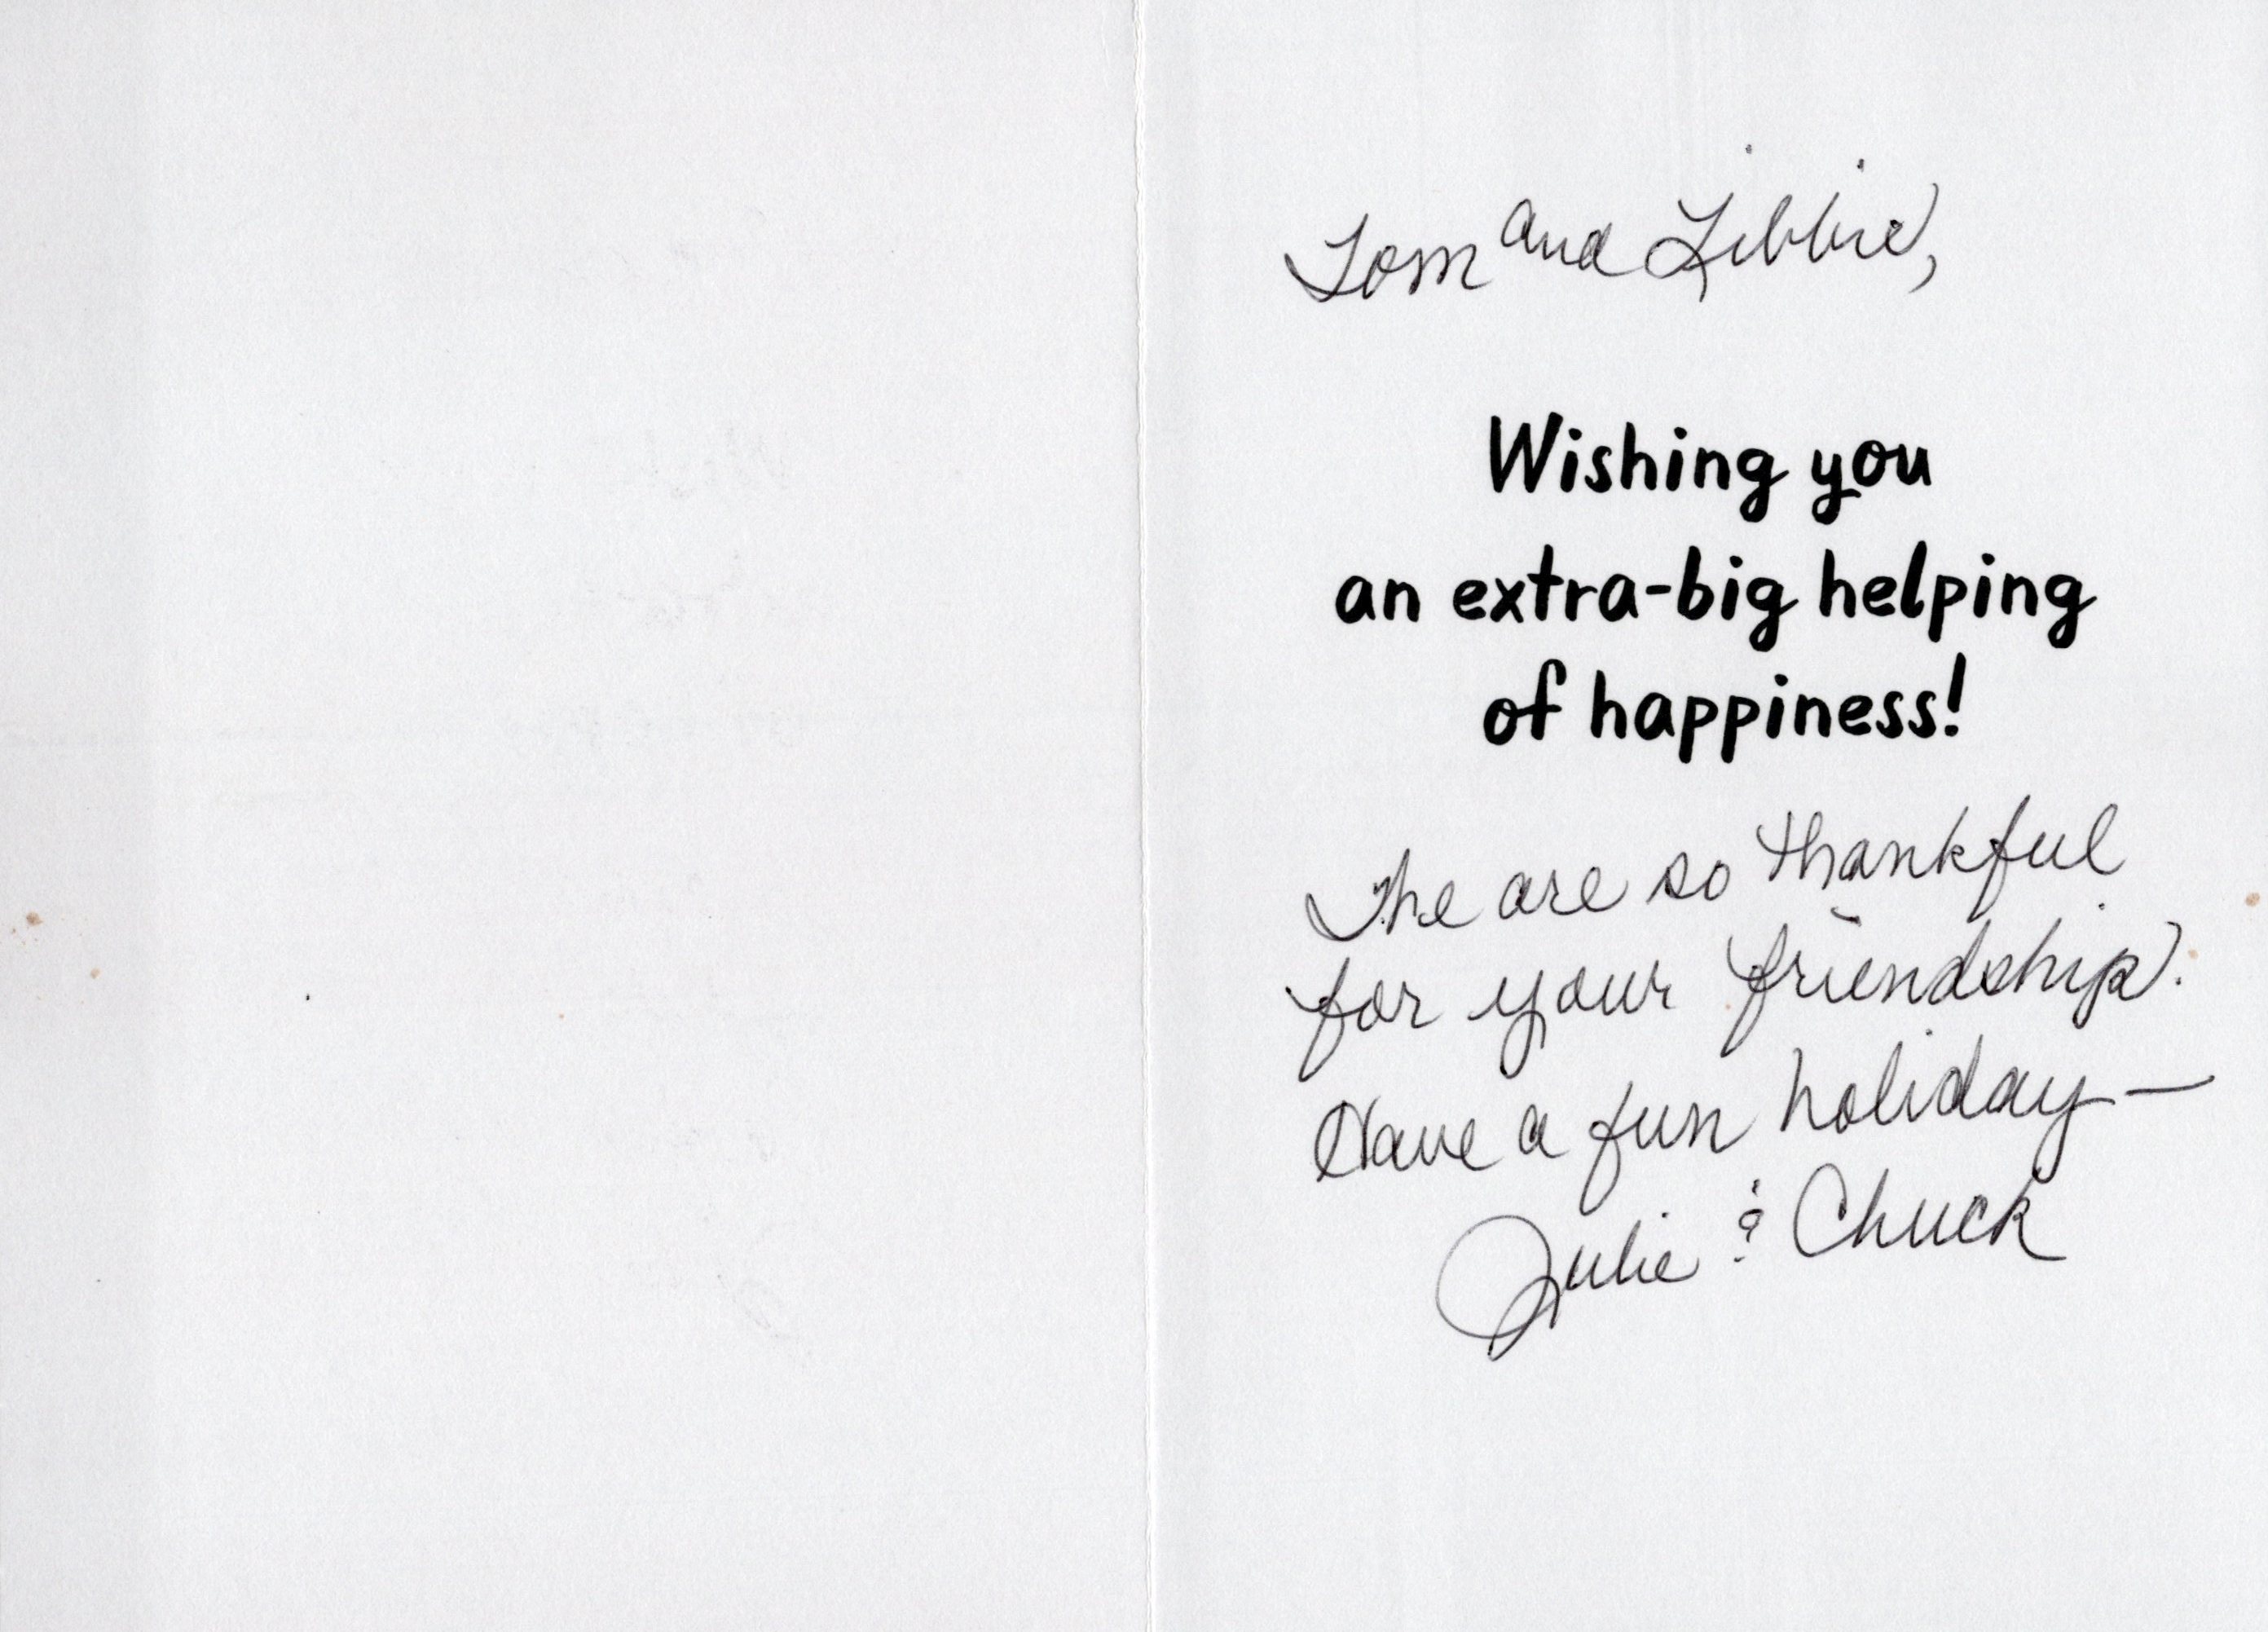 Tom and Libbie,
Wishing you
an extra-big helping
of happiness!
The are so thankful
for your friendship.
Have a fun holiday—
Julie & Chuck